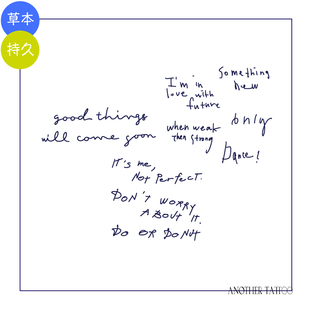 草本
持久
Something
new
I'm in
love with
future
only
good things
will come soon
when weak
then strong
Dance!
IT's me,
NOT PERFECT.
DON'T WORRY
ABOUT IT.
DO OR DONUT
ANOTHER TATTOO